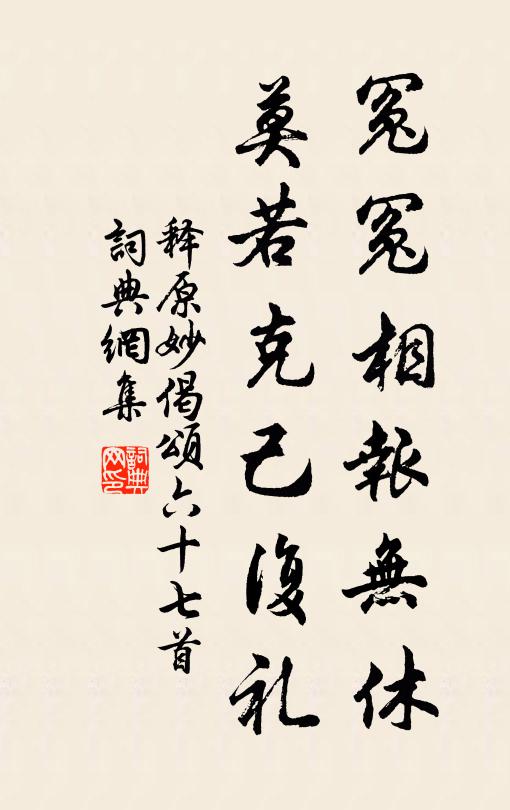 冤冤相報無休
莫若克己復礼
释原妙偈頌六十七首
詞典網集
詞典網印